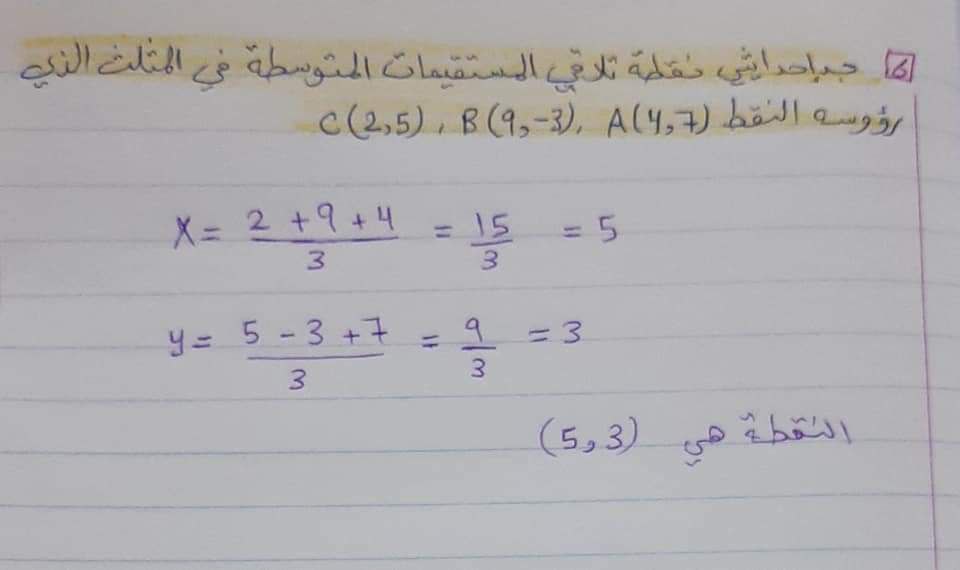 6 جد إحداثي نقطة تلاقي المستقيمات المتوسطة في المثلث الذي
رؤوسه النقط A(4,7) , B(9,-3) , C(2,5)
X = (2 + 9 + 4)/3 = 15/3 = 5
y = (5 - 3 + 7)/3 = 9/3 = 3
النقطة هي (5,3)